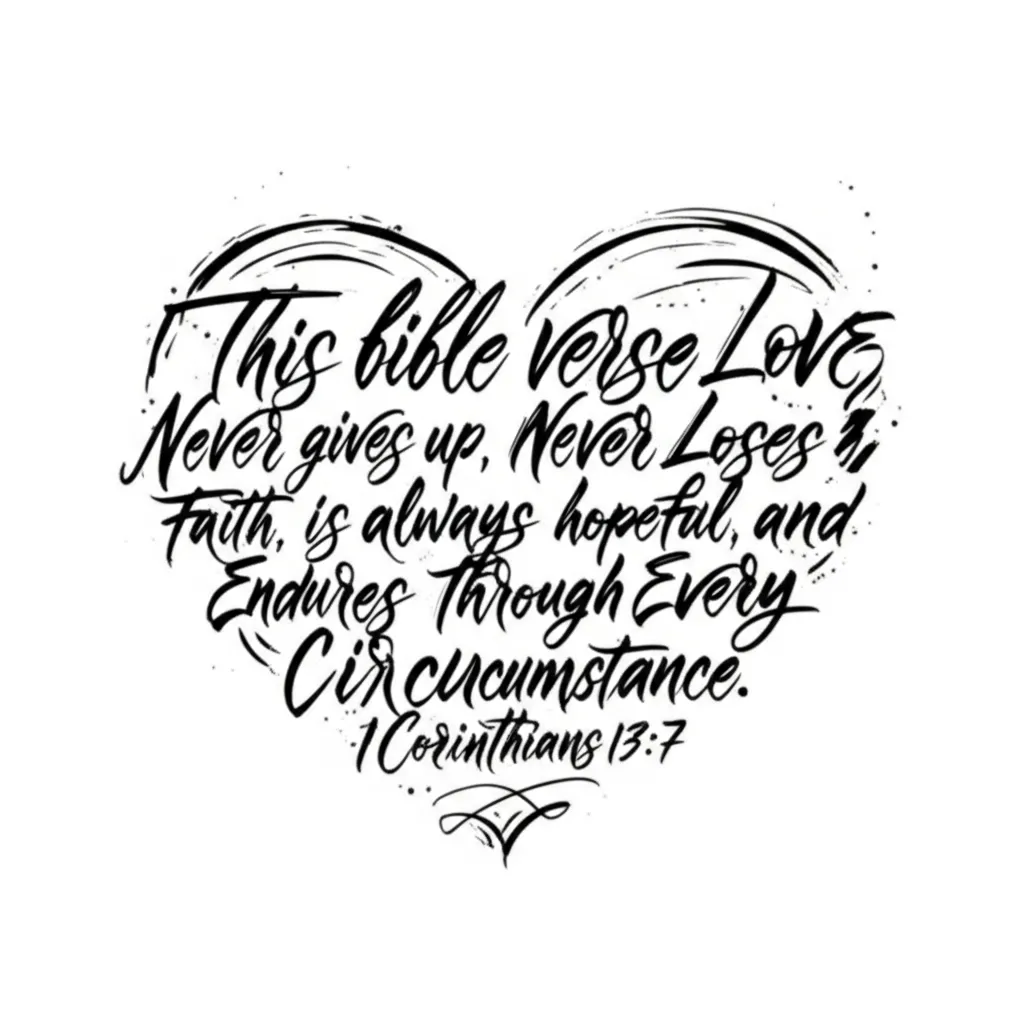 This bible verse Love
Never gives up, Never Loses
Faith, is always hopeful, and
Endures Through Every
Circucumstance.
1 Corinthians 13:7